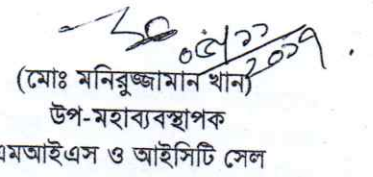 (মোঃ মনিরুজ্জামান খান)
উপ-মহাব্যবস্থাপক
এমআইএস ও আইসিটি সেল